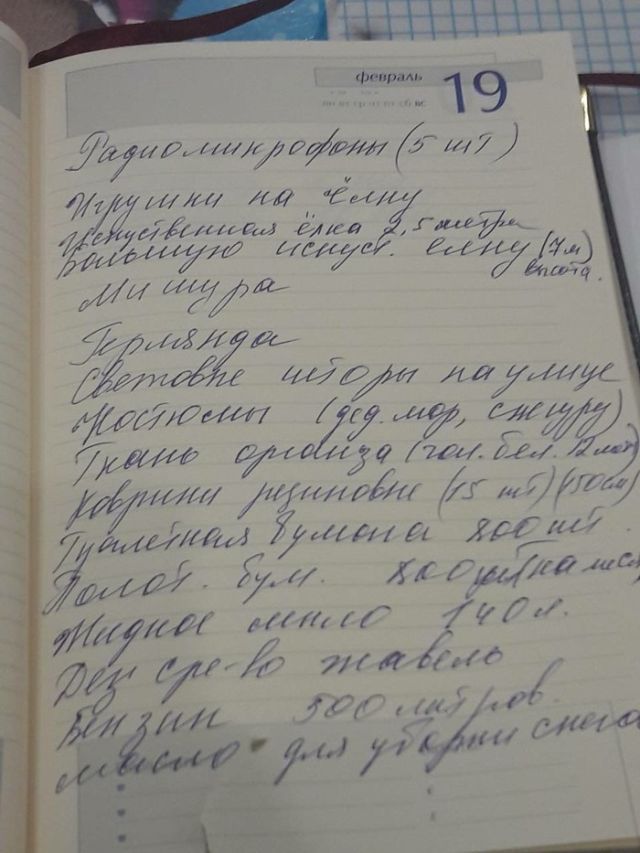 февраль 19
пн вт ср чт пт сб вс
Радиомикрофоны (5 шт)
Игрушки на ёлку
Искуственная ёлка 2,5 метра
Большую искуст. елку (7 м)
высота.
Мишура
Герлянда
Световые шторы на улице
Костюмы (дед. мор, снегур)
Ткань органза (гол. бел. 12 мет)
Коврики резиновые (15 шт) (150 см)
Туалетная бумага 800 шт.
Полот. бум. 800 (на меся
Жидкое мыло 140 л.
Дез ср-во жавель
Бензин 500 литров.
масло для уборки снега